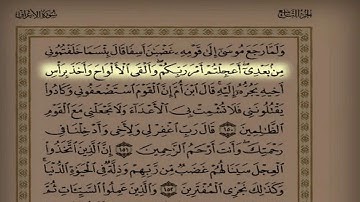 الجزء التاسع سورة الأعراف
ولما رجع موسى إلى قومه غضبان أسفا قال بئسما خلفتموني
من بعدي أعجلتم أمر ربكم وألقى الألواح وأخذ برأس
أخيه يجره إليه قال ابن أم إن القوم استضعفوني وكادوا
يقتلونني فلا تشمت بي الأعداء ولا تجعلني مع القوم
الظالمين ١٥٠ قال رب اغفر لي ولأخي وأدخلنا في
رحمتك وأنت أرحم الراحمين ١٥١ إن الذين اتخذوا
العجل سينالهم غضب من ربهم وذلة في الحياة الدنيا
وكذلك نجزي المفترين ١٥٢ والذين عملوا السيئات ثم